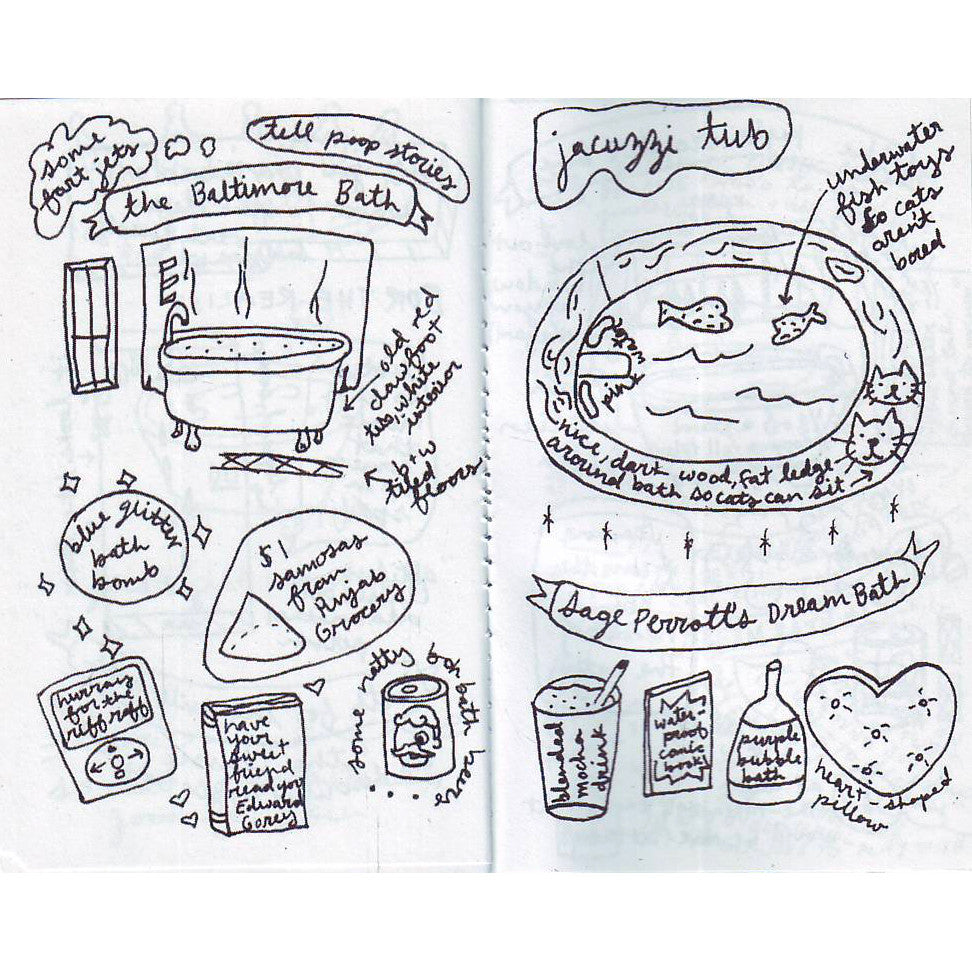 some
fart jets
tell poop stories
the Baltimore Bath
old red
clawfoot
tub, white
interior
b+w
tiled
floors
blue glitter
bath
bomb
$1
samosas
from
Punjab
Grocery
hurray
for the
riff raff
have
your
sweet
friend
read you
Edward
Gorey
some natty boh bath beers
jacuzzi tub
underwater
fish toys
so cats
aren't
bored
pink
nice, dark wood, fat ledge
around bath so cats can sit
Sage Perrott's Dream Bath
blended
mocha
drink
water-
proof
comic
book!
purple
bubble
bath
heart-shaped
pillow